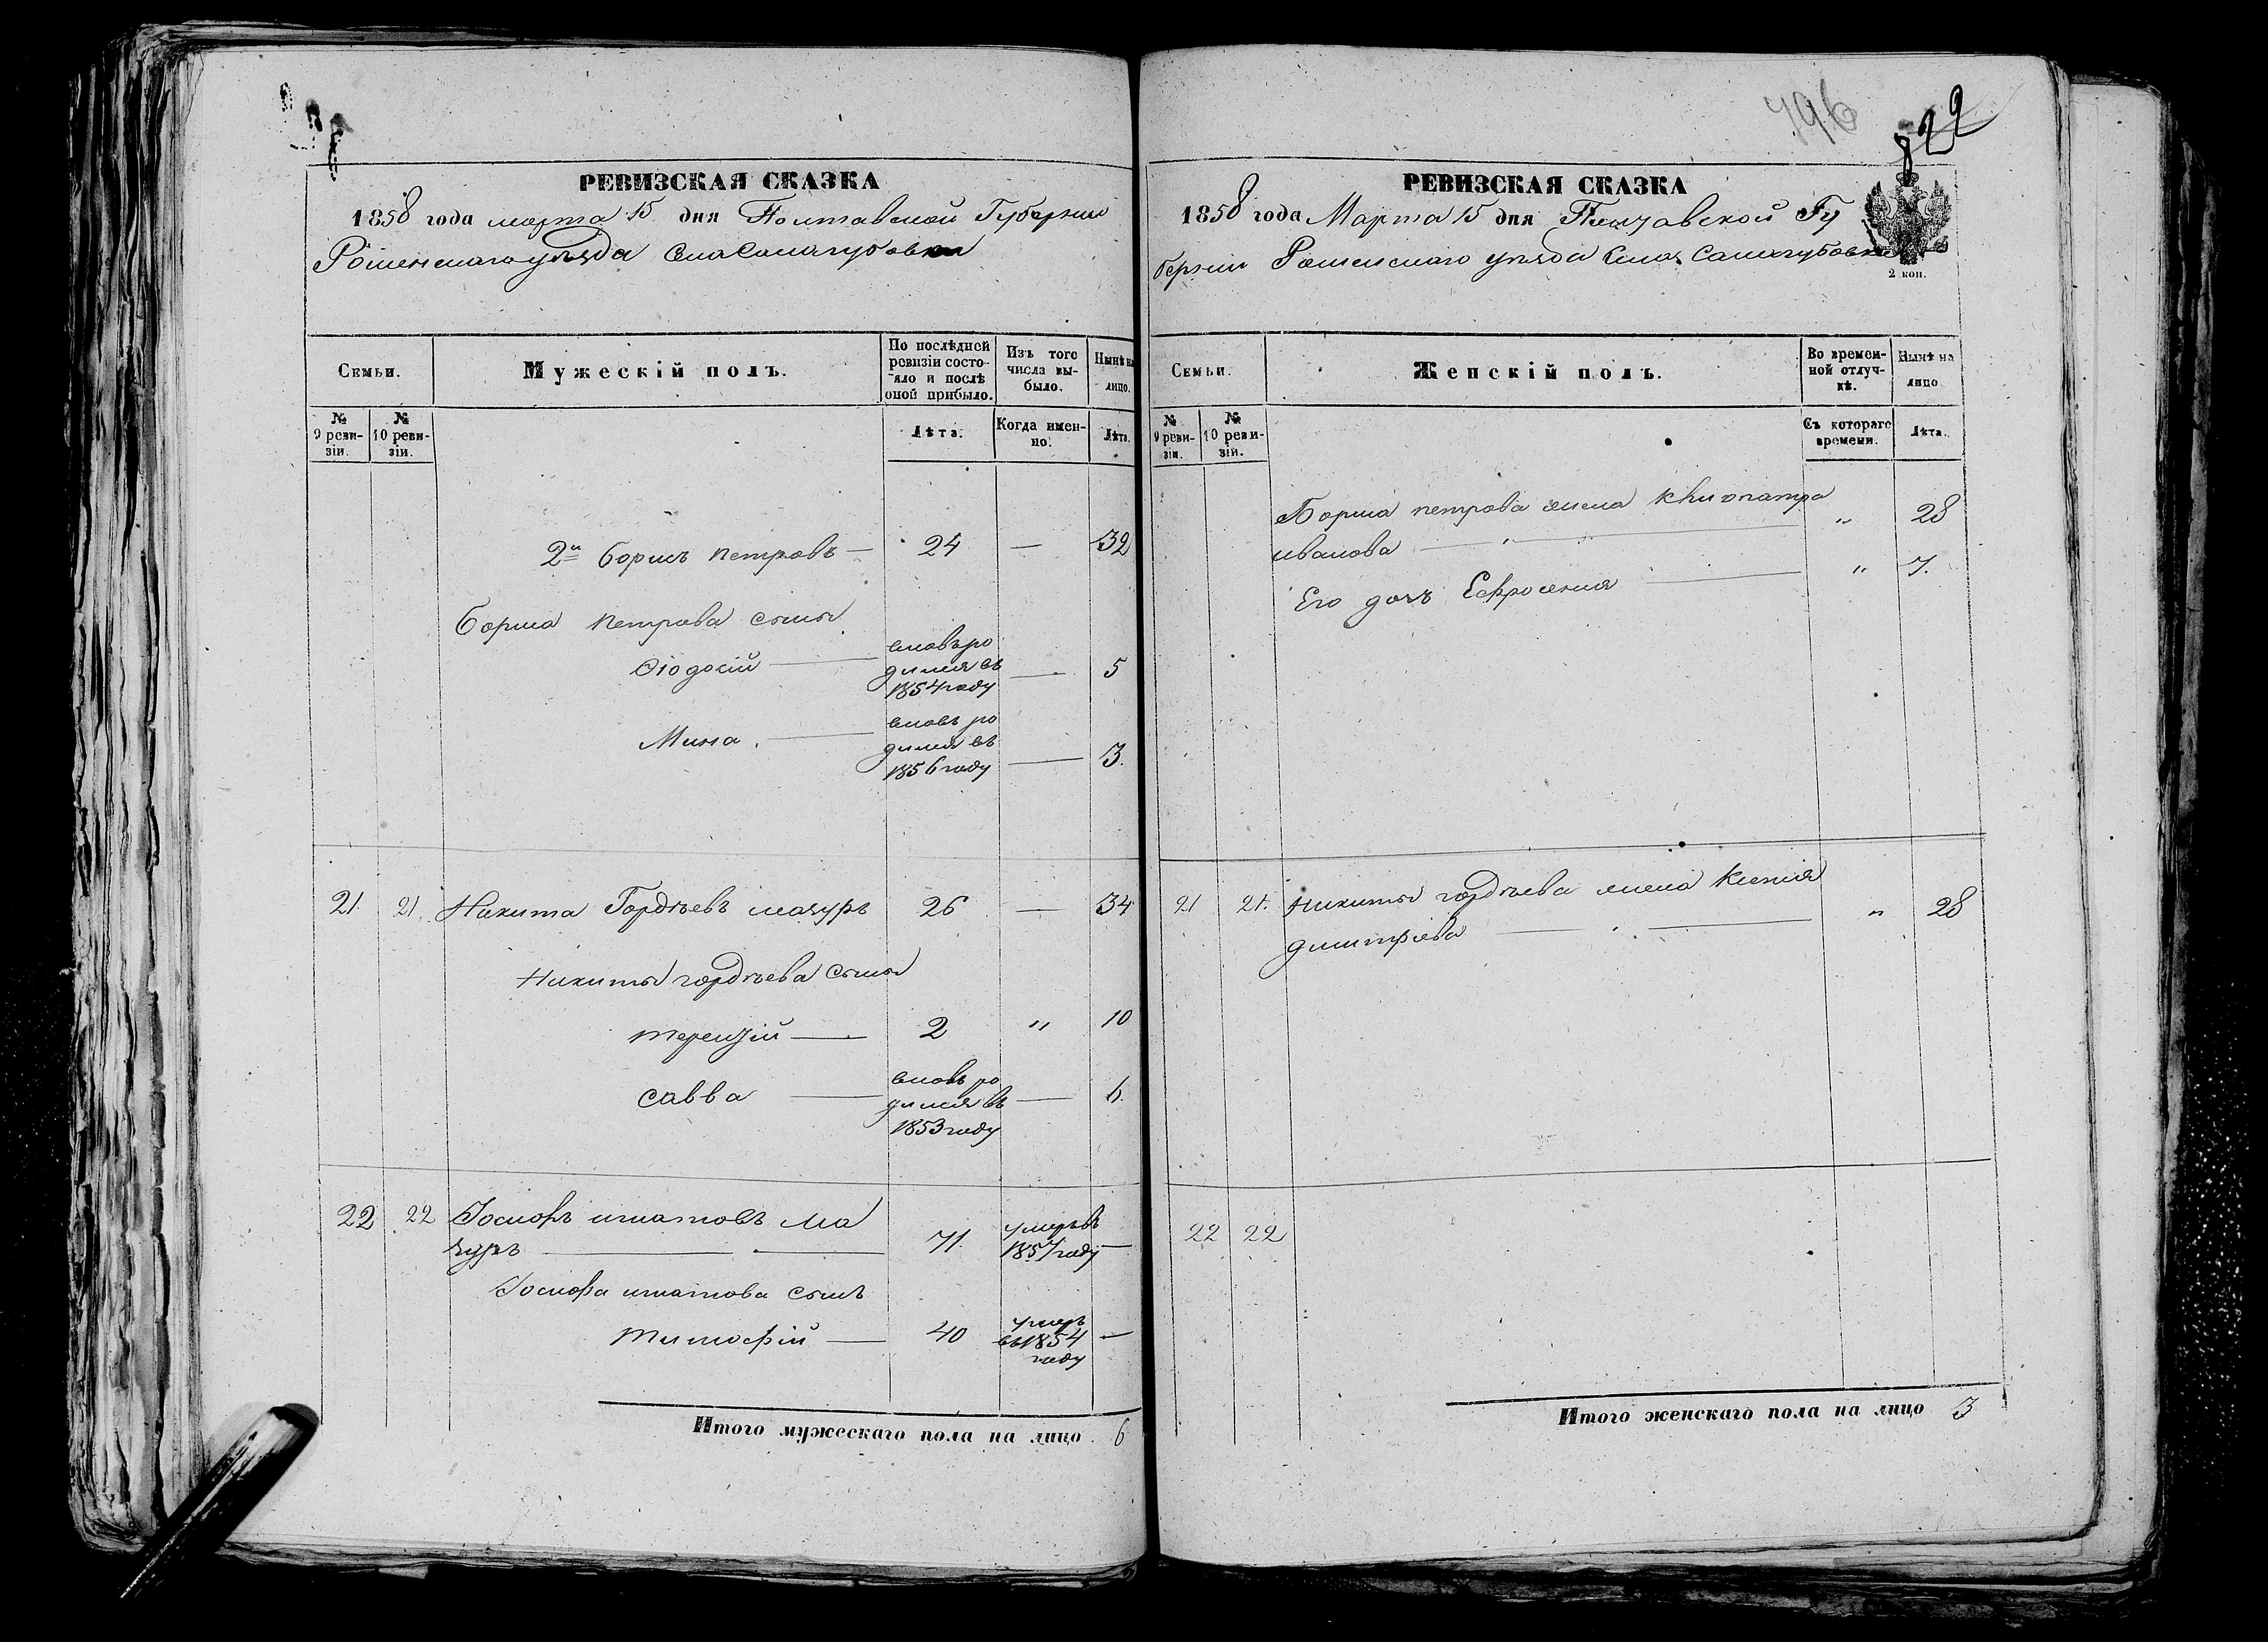 РЕВИЗСКАЯ СКАЗКА
1858 года марта 15 дня Полтавской Губернии
Роменскаго уѣзда Села Самагубовки
Семьи.
Мужескій полъ.
По послѣдней ревизіи состояло и послѣ оной прибыло.
Изъ того числа выбыло.
Нынѣ на лицо.
№ 9 ревизіи.
№ 10 ревизіи.
Лѣта.
Когда именно.
Лѣта.
2й Борисъ Петровъ — 24 — 32
Бориса Петрова сыны
Фіодосій — вновь родился въ 1854 году — 5
Мина. — вновь родился въ 1856 году — 3.
21. 21. Никита Гордѣевъ мазуръ 26 — 34
Никиты гордѣева сыны
терентій — 2 " 10
савва — вновь родился въ 1853 году — 6.
22 22 Іосифъ игнатовъ Ма
зуръ — 71. умеръ въ 1857 году —
Іосифа игнатова сынъ
тимофій — 40 умеръ въ 1854 году —
Итого мужескаго пола на лицо 6
796
822
РЕВИЗСКАЯ СКАЗКА
1858 года Марта 15 дня Полтавской Гу
берніи Роменскаго уѣзда Села Самагубовки
2 коп.
Семьи.
Женскій полъ.
Во временной отлучкѣ.
Нынѣ на лицо
№ 9 ревизіи.
№ 10 ревизіи.
Съ котораго времени.
Лѣта.
Бориса петрова жена Клиопатра
иванова — " 28
Его дочь Ефросения — " 7.
21 21. Никиты гордѣева жена Ксенія
димитріева — " 28
22 22
Итого женскаго пола на лицо 3